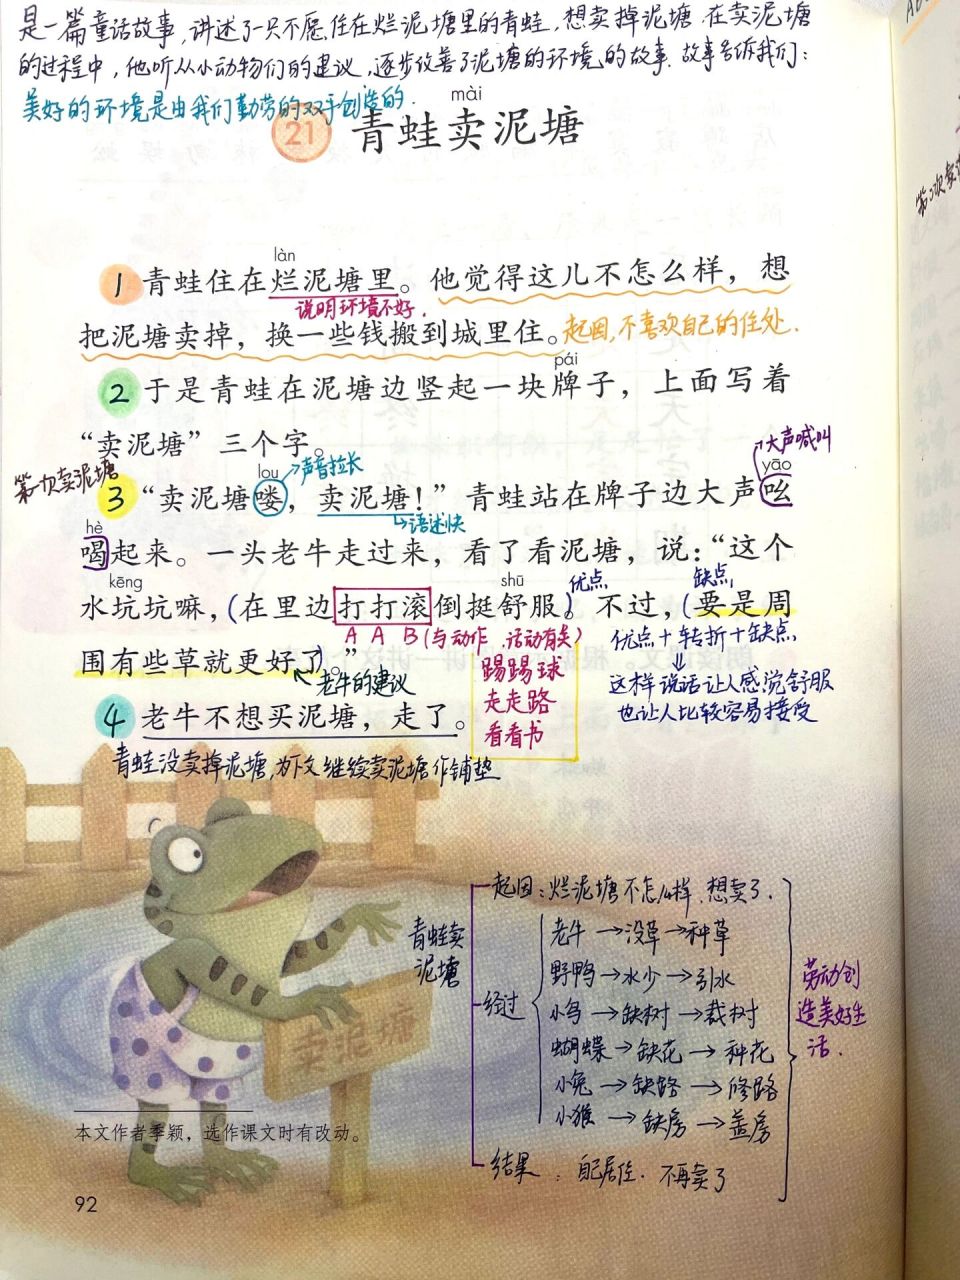 是一篇童话故事,讲述了一只不愿住在烂泥塘里的青蛙,想卖掉泥塘,在卖泥塘
的过程中,他听从小动物们的建议,逐步改善了泥塘的环境的故事.故事告诉我们:
美好的环境是由我们勤劳的双手创造的.
mài
21 青蛙卖泥塘
làn
1 青蛙住在烂泥塘里。他觉得这儿不怎么样，想
说明环境不好.
把泥塘卖掉，换一些钱搬到城里住。起因,不喜欢自己的住处.
pái
2 于是青蛙在泥塘边竖起一块牌子，上面写着
“卖泥塘”三个字。
大声喊叫
第一次卖泥塘
lou 声音拉长 yāo
3 “卖泥塘喽，卖泥塘！”青蛙站在牌子边大声吆
语速快
hè
喝起来。一头老牛走过来，看了看泥塘，说：“这个
kēng shū 优点 缺点
水坑坑嘛，(在里边打打滚倒挺舒服)。不过，(要是周
A A B (与动作、活动有关) 优点+转折+缺点
围有些草就更好了)。”
老牛的建议
踢踢球
走走路
看看书
这样说话让人感觉舒服
也让人比较容易接受
4 老牛不想买泥塘，走了。
青蛙没卖掉泥塘,为下文继续卖泥塘作铺垫
青蛙卖
泥塘
起因:烂泥塘不怎么样,想卖了.
经过
老牛→没草→种草
野鸭→水少→引水
小鸟→缺树→栽树
蝴蝶→缺花→种花
小兔→缺路→修路
小猴→缺房→盖房
结果:自己居住.不再卖了
劳动创
造美好生
活.
卖泥塘
本文作者季颖，选作课文时有改动。
92